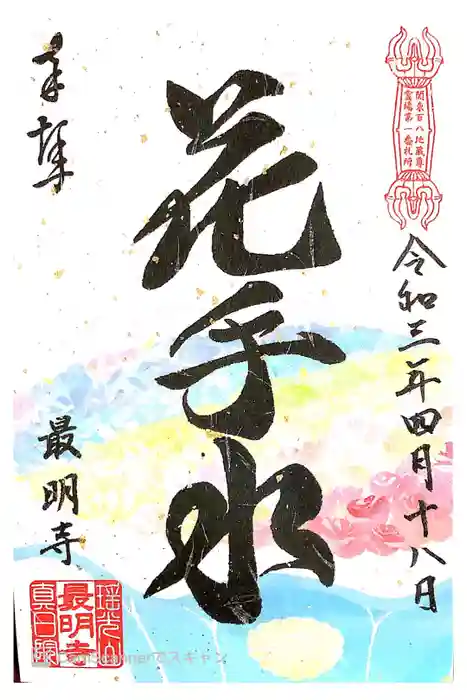 関東百八地蔵尊
霊場第一番札所
令和三年四月十八日
花手水
奉拝
最明寺
瑶光山
最明寺
真日院
CamScannerでスキャン